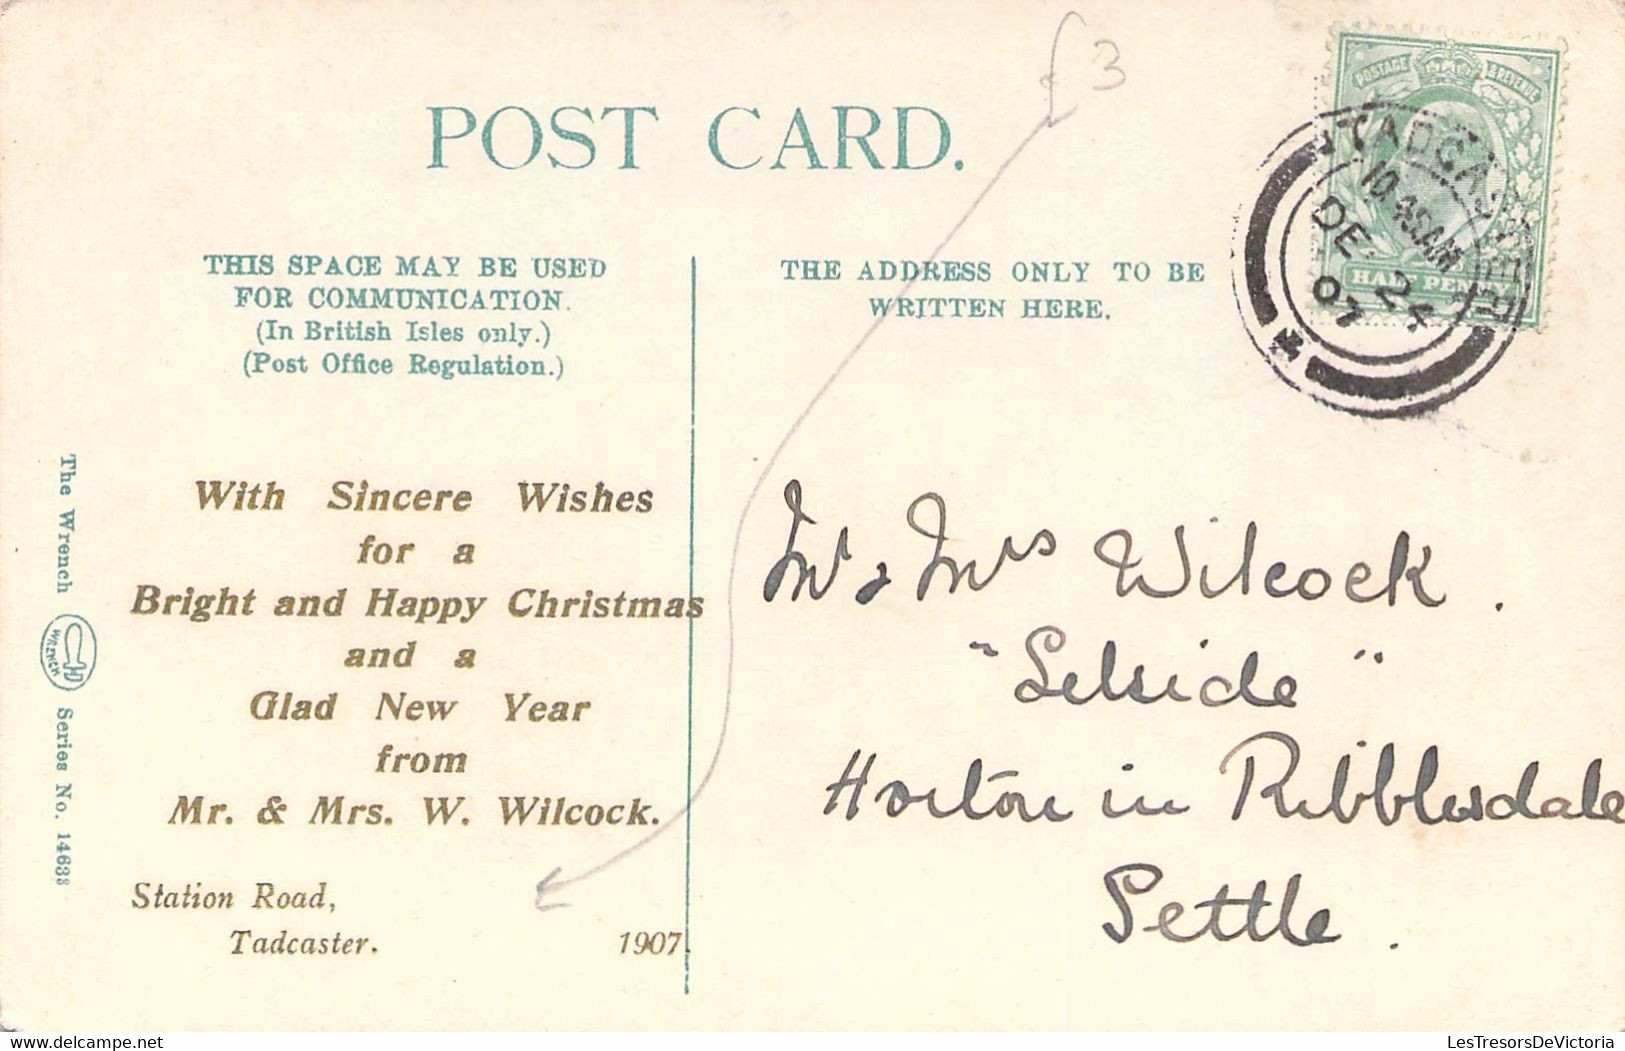 £3
POST CARD.
POSTAGE & REVENUE
HALF PENNY
TADCASTER
10.45AM
DE 24
07
THIS SPACE MAY BE USED
FOR COMMUNICATION.
(In British Isles only.)
(Post Office Regulation.)
THE ADDRESS ONLY TO BE
WRITTEN HERE.
The Wrench
WRENCH
Series No. 14633
With Sincere Wishes
for a
Bright and Happy Christmas
and a
Glad New Year
from
Mr. & Mrs. W. Wilcock.
Station Road,
Tadcaster. 1907.
Mr & Mrs Wilcock.
"Selside"
Horton in Ribblesdale
Settle.
LesTresorsDeVictoria
www.delcampe.net